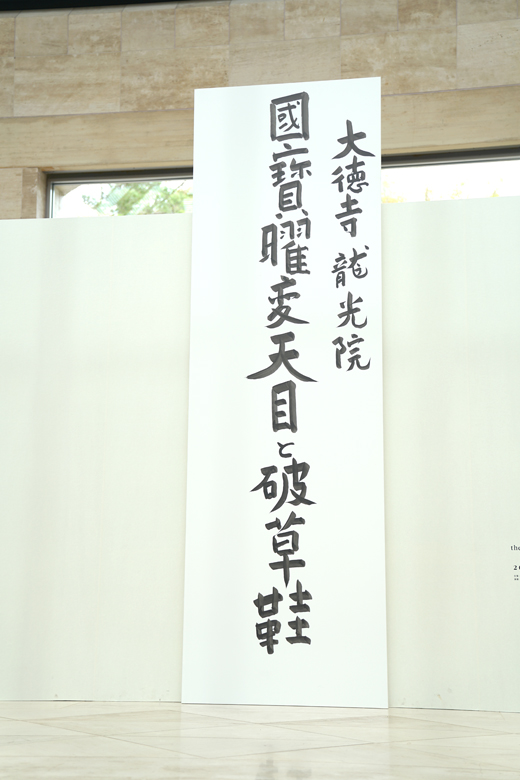 大徳寺 龍光院
國寳曜変天目と破草鞋
the
20